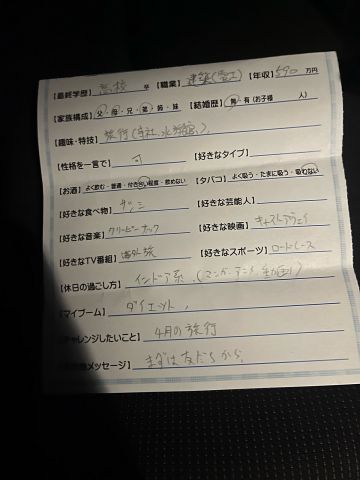 【最終学歴】高校 卒 【職業】建築(電工) 【年収】590 万円
【家族構成】父・母・兄・弟・姉・妹 【結婚歴】無・有(お子様 人)
【趣味・特技】旅行(寺社、水族館)、
【性格を一言で】 【好きなタイプ】
【お酒】よく飲む・普通・付き合い程度・飲めない 【タバコ】よく吸う・たまに吸う・吸わない
【好きな食べ物】サシミ 【好きな芸能人】
【好きな音楽】クリーピーナッツ 【好きな映画】キャストアウェイ
【好きなTV番組】海外旅 【好きなスポーツ】ロードレース
【休日の過ごし方】インドア系、(マンガ、アニメ、動画)
【マイブーム】ダイエット、
【チャレンジしたいこと】4月の旅行
メッセージ】まずは友だちから、